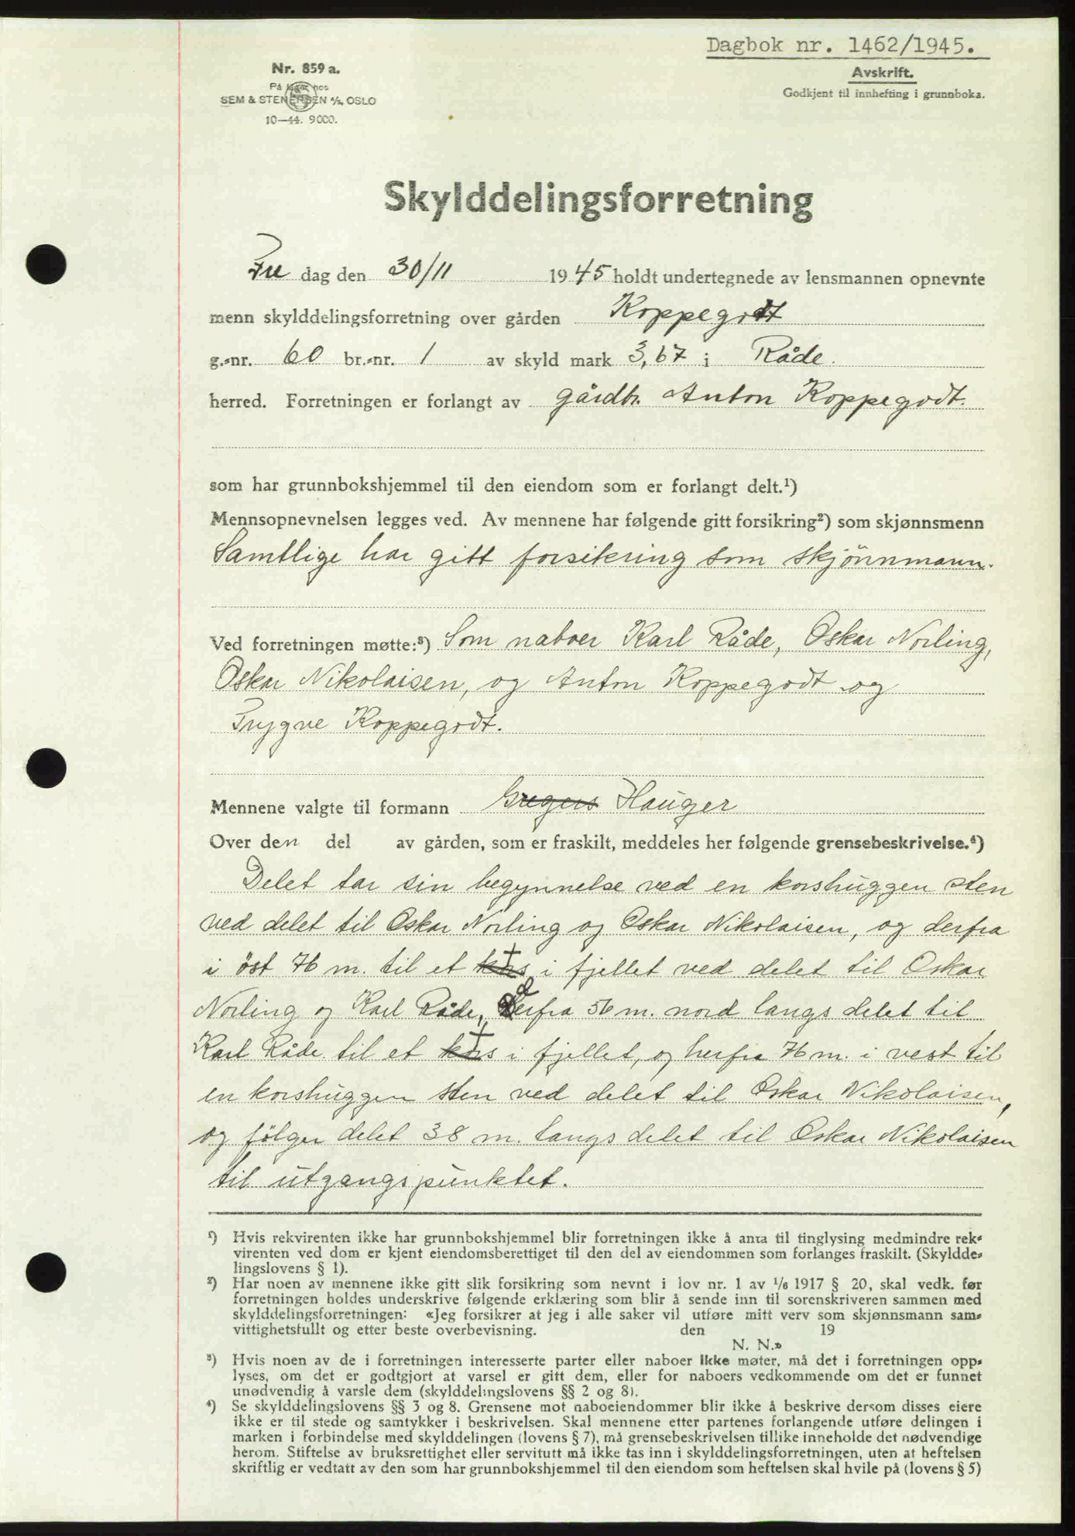 Dagbok nr. 1462/1945.
Avskrift.
Godkjent til innhefting i grunnboka.
Nr. 859 a.
På lager hos
SEM & STENERSEN A/S, OSLO
10—44. 9000.
Skylddelingsforretning
Fre dag den 30/11 1945 holdt undertegnede av lensmannen opnevnte
menn skylddelingsforretning over gården Koppegodt
g.-nr. 60 br.-nr. 1 av skyld mark 3,67 i Råde.
herred. Forretningen er forlangt av gårdbr. Anton Koppegodt.
som har grunnbokshjemmel til den eiendom som er forlangt delt.¹)
Mennsopnevnelsen legges ved. Av mennene har følgende gitt forsikring²) som skjønnsmenn
Samtlige har gitt forsikring som skjönnmann.
Ved forretningen møtte:³) Som naboer Karl Råde, Oskar Norling,
Oskar Nikolaisen, og Anton Koppegodt og
Trygve Koppegodt.
Mennene valgte til formann Gregers Hauger
Over den del av gården, som er fraskilt, meddeles her følgende grensebeskrivelse.⁴)
Delet tar sin begynnelse ved en korshuggen sten
ved delet til Oskar Norling og Oskar Nikolaisen, og derfra
i öst 76 m. til et kors † i fjellet ved delet til Oskar
Norling og Karl Råde, derfra 56 m. nord langs delet til
Karl Råde til et kors † i fjellet, og herfra 76 m. i vest til
en korshuggen sten ved delet til Oskar Nikolaisen,
og følger delet 38 m. langs delet til Oskar Nikolaisen
til utgangspunktet.
¹) Hvis rekvirenten ikke har grunnbokshjemmel blir forretningen ikke å anta til tinglysing medmindre rek-
virenten ved dom er kjent eiendomsberettiget til den del av eiendommen som forlanges fraskilt. (Skyldde-
lingslovens § 1).
²) Har noen av mennene ikke gitt slik forsikring som nevnt i lov nr. 1 av 1/6 1917 § 20, skal vedk. før
forretningen holdes underskrive følgende erklæring som blir å sende inn til sorenskriveren sammen med
skylddelingsforretningen: «Jeg forsikrer at jeg i alle saker vil utføre mitt verv som skjønnsmann sam-
vittighetsfullt og etter beste overbevisning. den 19
N. N.»
³) Hvis noen av de i forretningen interesserte parter eller naboer ikke møter, må det i forretningen opp-
lyses, om det er godtgjort at varsel er gitt dem, eller for naboers vedkommende om det er funnet
unødvendig å varsle dem (skylddelingslovens §§ 2 og 8).
⁴) Se skylddelingslovens §§ 3 og 8. Grensene mot naboeiendommer blir ikke å beskrive dersom disses eiere
ikke er til stede og samtykker i beskrivelsen. Skal mennene etter partenes forlangende utføre delingen i
marken i forbindelse med skylddelingen (lovens § 7), må grensebeskrivelsen tillike inneholde det nødvendige
herom. Stiftelse av bruksrettighet eller servitutt må ikke tas inn i skylddelingsforretningen, uten at heftelsen
skriftlig er vedtatt av den som har grunnbokshjemmel til den eiendom som heftelsen skal hvile på (lovens § 5)